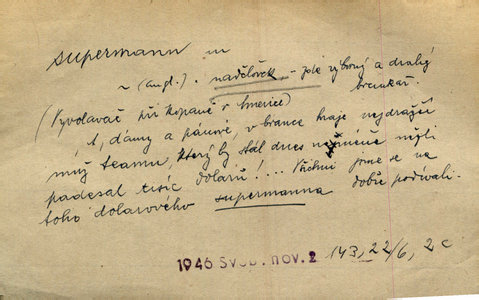 supermann m
~ (angl.). nadčlověk, – zde výborný a drahý
brankář.
(Vyvolavač při kopané v Americe)
A, dámy a pánové, v brance hraje nejdražší
muž teamu, který by stál dnes nejméně
padesát tisíc dolarů!... Všichni jsme se na
toho dolarového supermanna dobře podívali.
1946 Svob. nov. 2 143, 22/6, 2c